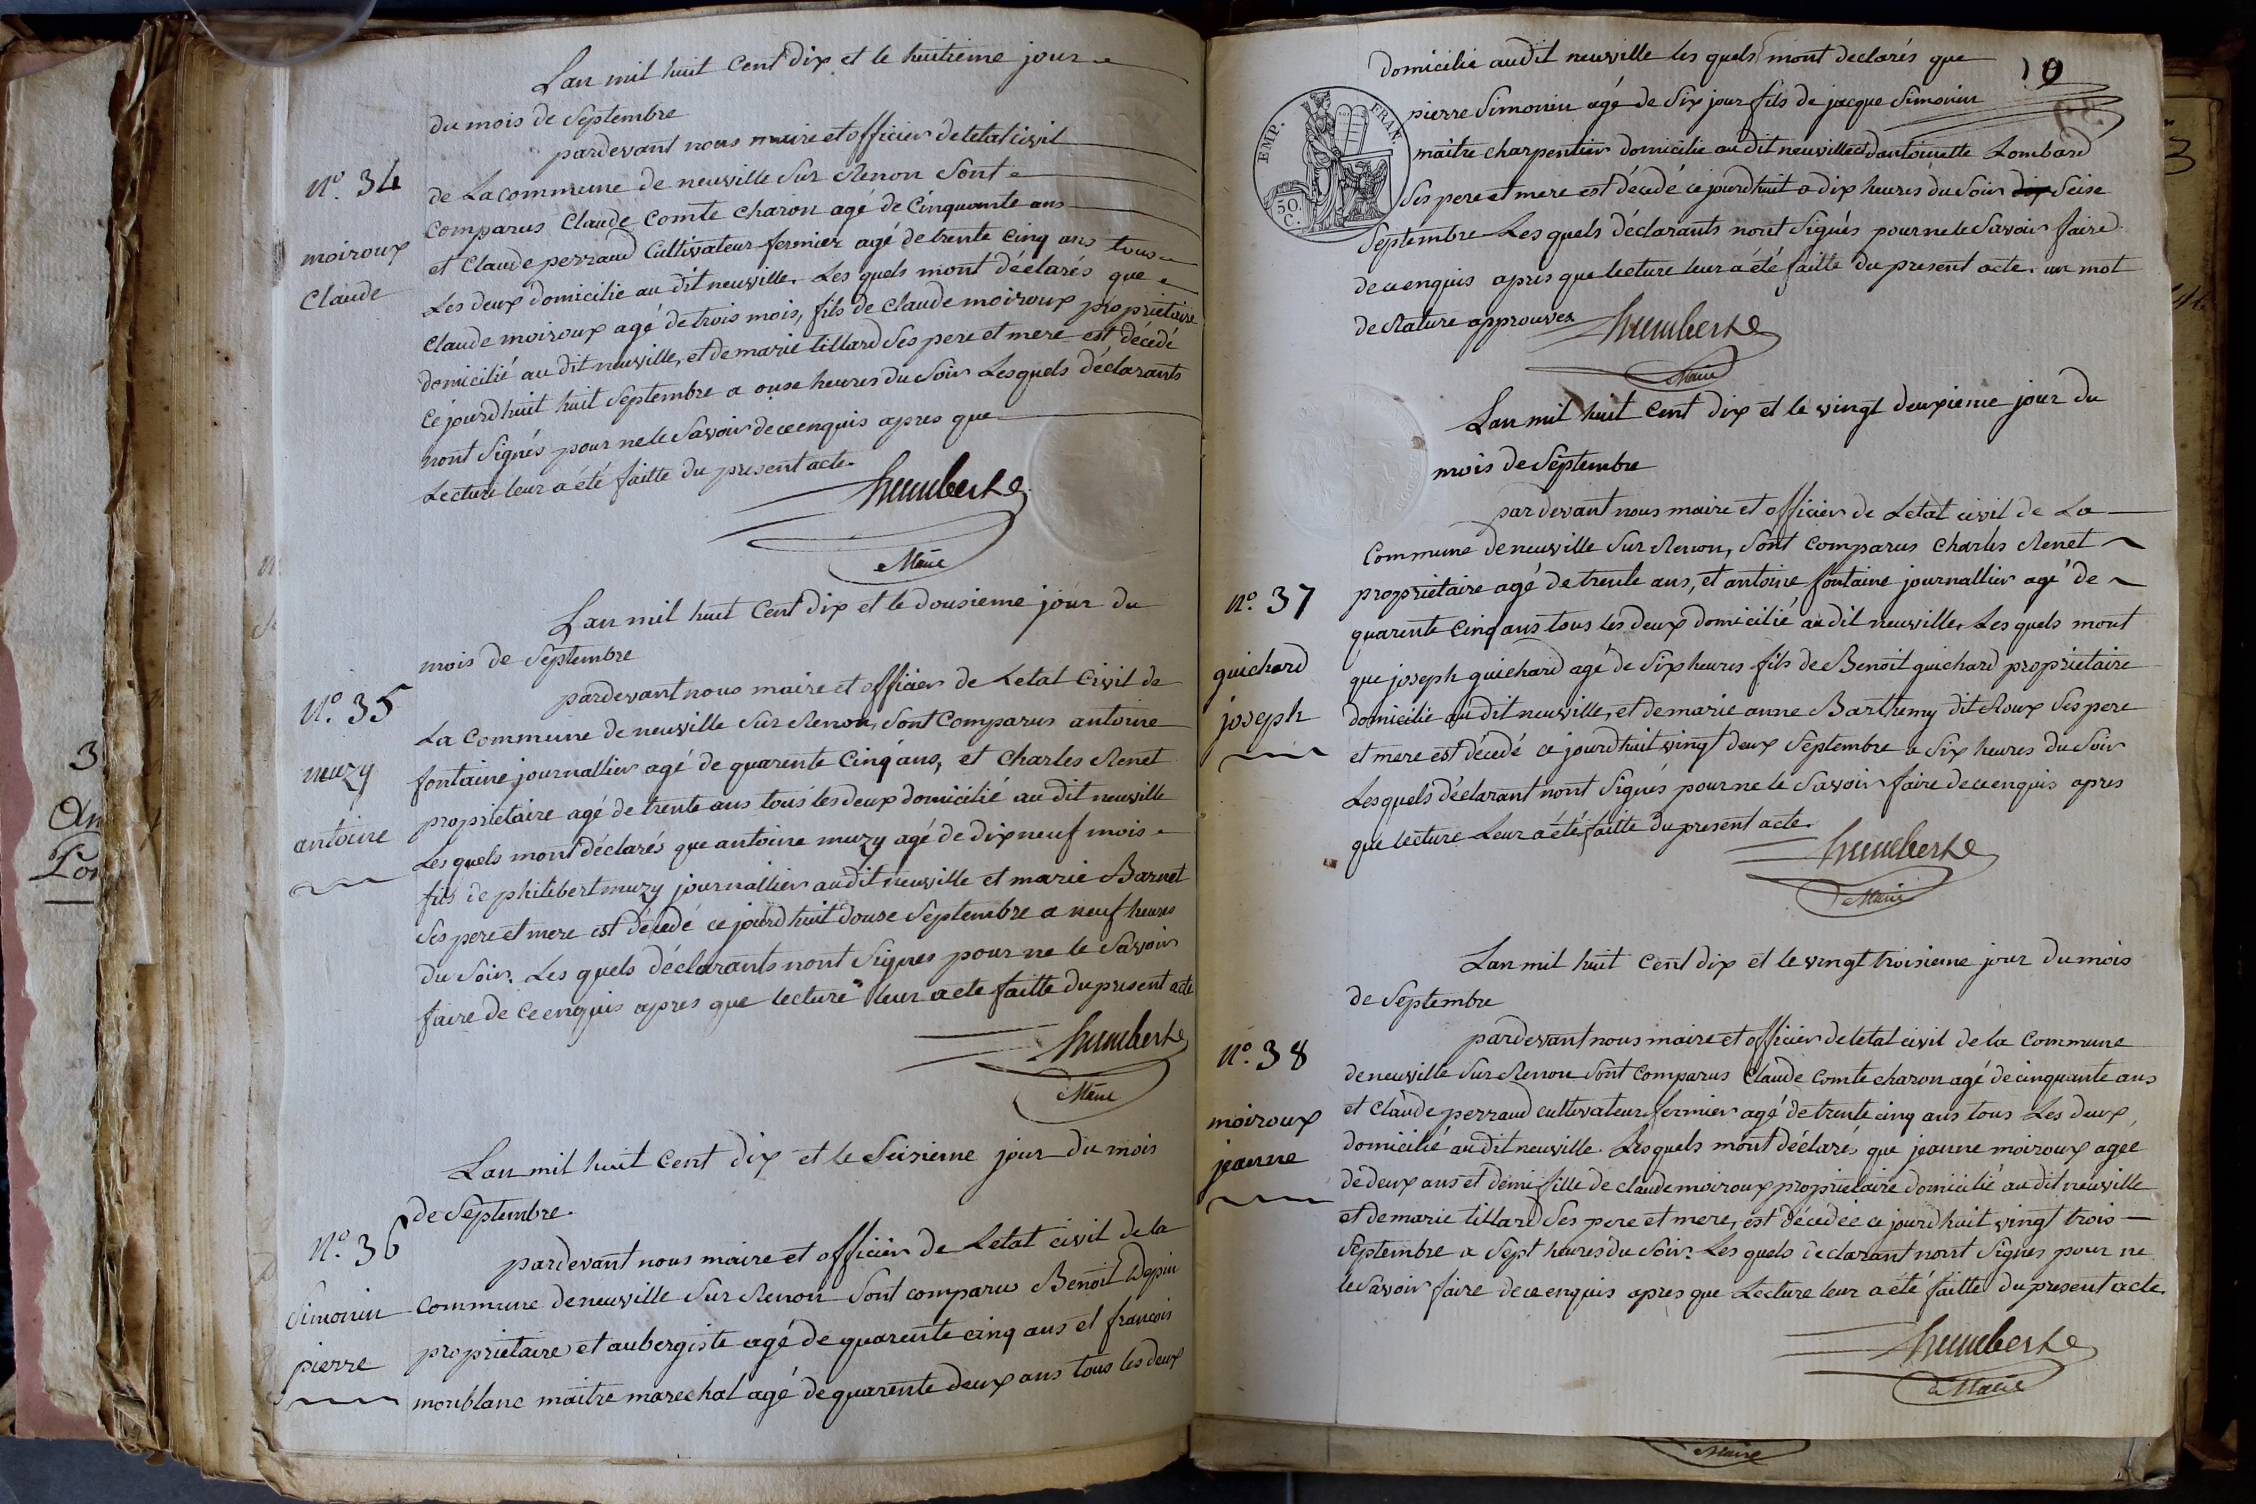 Lan mil huit Cent dix et le huitieme jour
du mois de Septembre
pardevant nous maire et officier de letat civil
N.º 34
de La commune de neuville Sur Renon Sont
comparus Claude Comte charon agé de Cinquante ans
moiroux
et Claude perraud Cultivateur fermier agé de trente cinq ans tous
Claude
Les deux domicilie au dit neuville. Les quels mont déclarés que
Claude moiroux agé de trois mois, fils de Claude moiroux proprietaire
domicilié au dit neuville, et de marie tillard Ses pere et mere est décédé
Ce jourdhuit huit Septembre a onse heures du Soir Lesquels déclarants
nont Signés pour ne le Savoir de ce enquis apres que
Lecture leur a été faitte du present acte.
humbert
Maire
Lan mil huit Cent dix et le dousieme jour du
mois de Septembre
N.º 35
pardevant nous maire et officier de Letat Civil de
La Commune de neuville Sur Renon, Sont Comparus antoine
muzy
fontaine journallier agé de quarente Cinq ans, et Charles Renet
proprietaire agé de trente ans tous les deux domicilié au dit neuville
antoine
Les quels mont déclarés que antoine muzy agé de dix neuf mois
fils de philibert muzy journallier audit neuville et marie Barnet
Ses pere et mere est décedé ce jourd huit douse Septembre a neuf heures
du Soir. Les quels déclarants nont Signes pour ne le Savoir
faire de Ce enquis apres que lecture leur a ete faitte du present acte
humbert
Maire
Lan mil huit Cent dix et le Seisieme jour du mois
de Septembre.
N.º 36
pardevant nous maire et officier de Letat civil de la
Simonin
Commune de neuville Sur Renon Sont comparu Benoit Depin
proprietaire et aubergiste agé de quarente cinq ans et francois
pierre
monblanc maitre marechal agé de quarente deux ans tous les deux
domicilié audit neuville les quels mont declarés que
10
EMP. FRAN.
50. C.
pierre Simonin agé de Six jour fils de jacque Simonin
maitre charpentier domicilie au dit neuville et dantoinette Lombard
Ses pere et mere est décedé ce jourdhuit a dix heures du Soir dix Seise
Septembre Les quels déclarants nont Signés pour ne le Savoir faire
de ce enquis apres que lecture leur a été faitte du present acte. un mot
de Rature approuver
humbert
Maire
Lan mil huit Cent dix et le vingt deuxieme jour du
mois de Septembre
par devant nous maire et officier de Letat civil de La
Commune de neuville Sur Renon, Sont comparus Charles Renet
N.º 37
proprietaire agé de trente ans, et antoine fontaine journallier agé de
quarente Cinq ans tous les deux domicilié au dit neuville. Les quels mont
guichard
que joseph guichard agé de Six heures fils de Benoit guichard proprietaire
joseph
domicilié au dit neuville, et de marie anne Barthemy dit Roux Ses pere
et mere est décedé ce jourdhuit vingt deux Septembre a Six heures du Soir
Lesquels déclarant nont Signés pour ne le Savoir faire de ce enquis apres
que lecture Leur a été faitte du present acte.
humbert
Maire
Lan mil huit Cent dix et le vingt troisieme jour du mois
de Septembre
N.º 38
pardevant nous maire et officier de letat civil de la Commune
de neuville Sur Renon Sont comparus Claude Comte charon agé de cinquante ans
moiroux
et Claude perraud cultivateur fermier agé de trente cinq ans tous Les deux
jeanne
domicilié au dit neuville. Lesquels mont déclarés que jeanne moiroux ageé
de deux ans et demi fille de claude moiroux proprietaire domicilié au dit neuville
et de marie tillard Ses pere et mere, est décedée ce jourdhuit vingt trois
Septembre a Sept heures du Soir. Les quels declarant nont Signes pour ne
le Savoir faire de ce enquis apres que Lecture leur a été faitte du present acte.
humbert
Maire
Maire